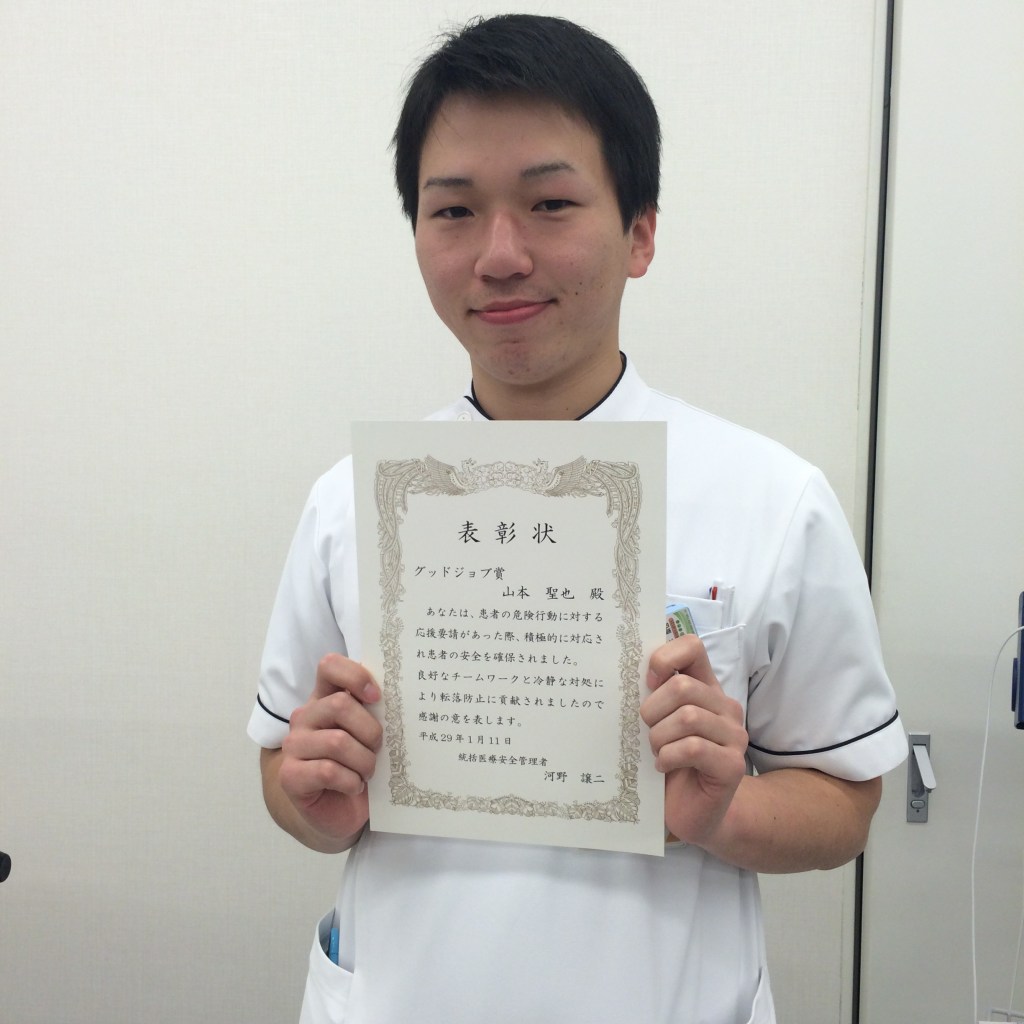 表彰状
グッドジョブ賞
山本 聖也 殿
あなたは、患者の危険行動に対する
応援要請があった際、積極的に対応さ
れ患者の安全を確保されました。
良好なチームワークと冷静な対処に
より転落防止に貢献されましたので
感謝の意を表します。
平成29年1月11日
統括医療安全管理者
河野 譲二